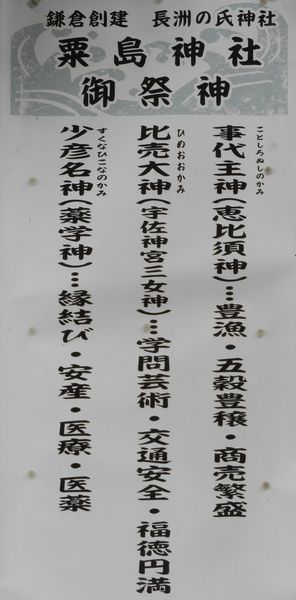 鎌倉創建　長洲の氏神社
粟島神社
御祭神
ことしろぬしのかみ
事代主神(恵比須神)…豊漁・五穀豊穣・商売繁盛
ひめおおかみ
比売大神(宇佐神宮三女神)…学問芸術・交通安全・福徳円満
すくなひこなのかみ
少彦名神(薬学神)…縁結び・安産・医療・医薬